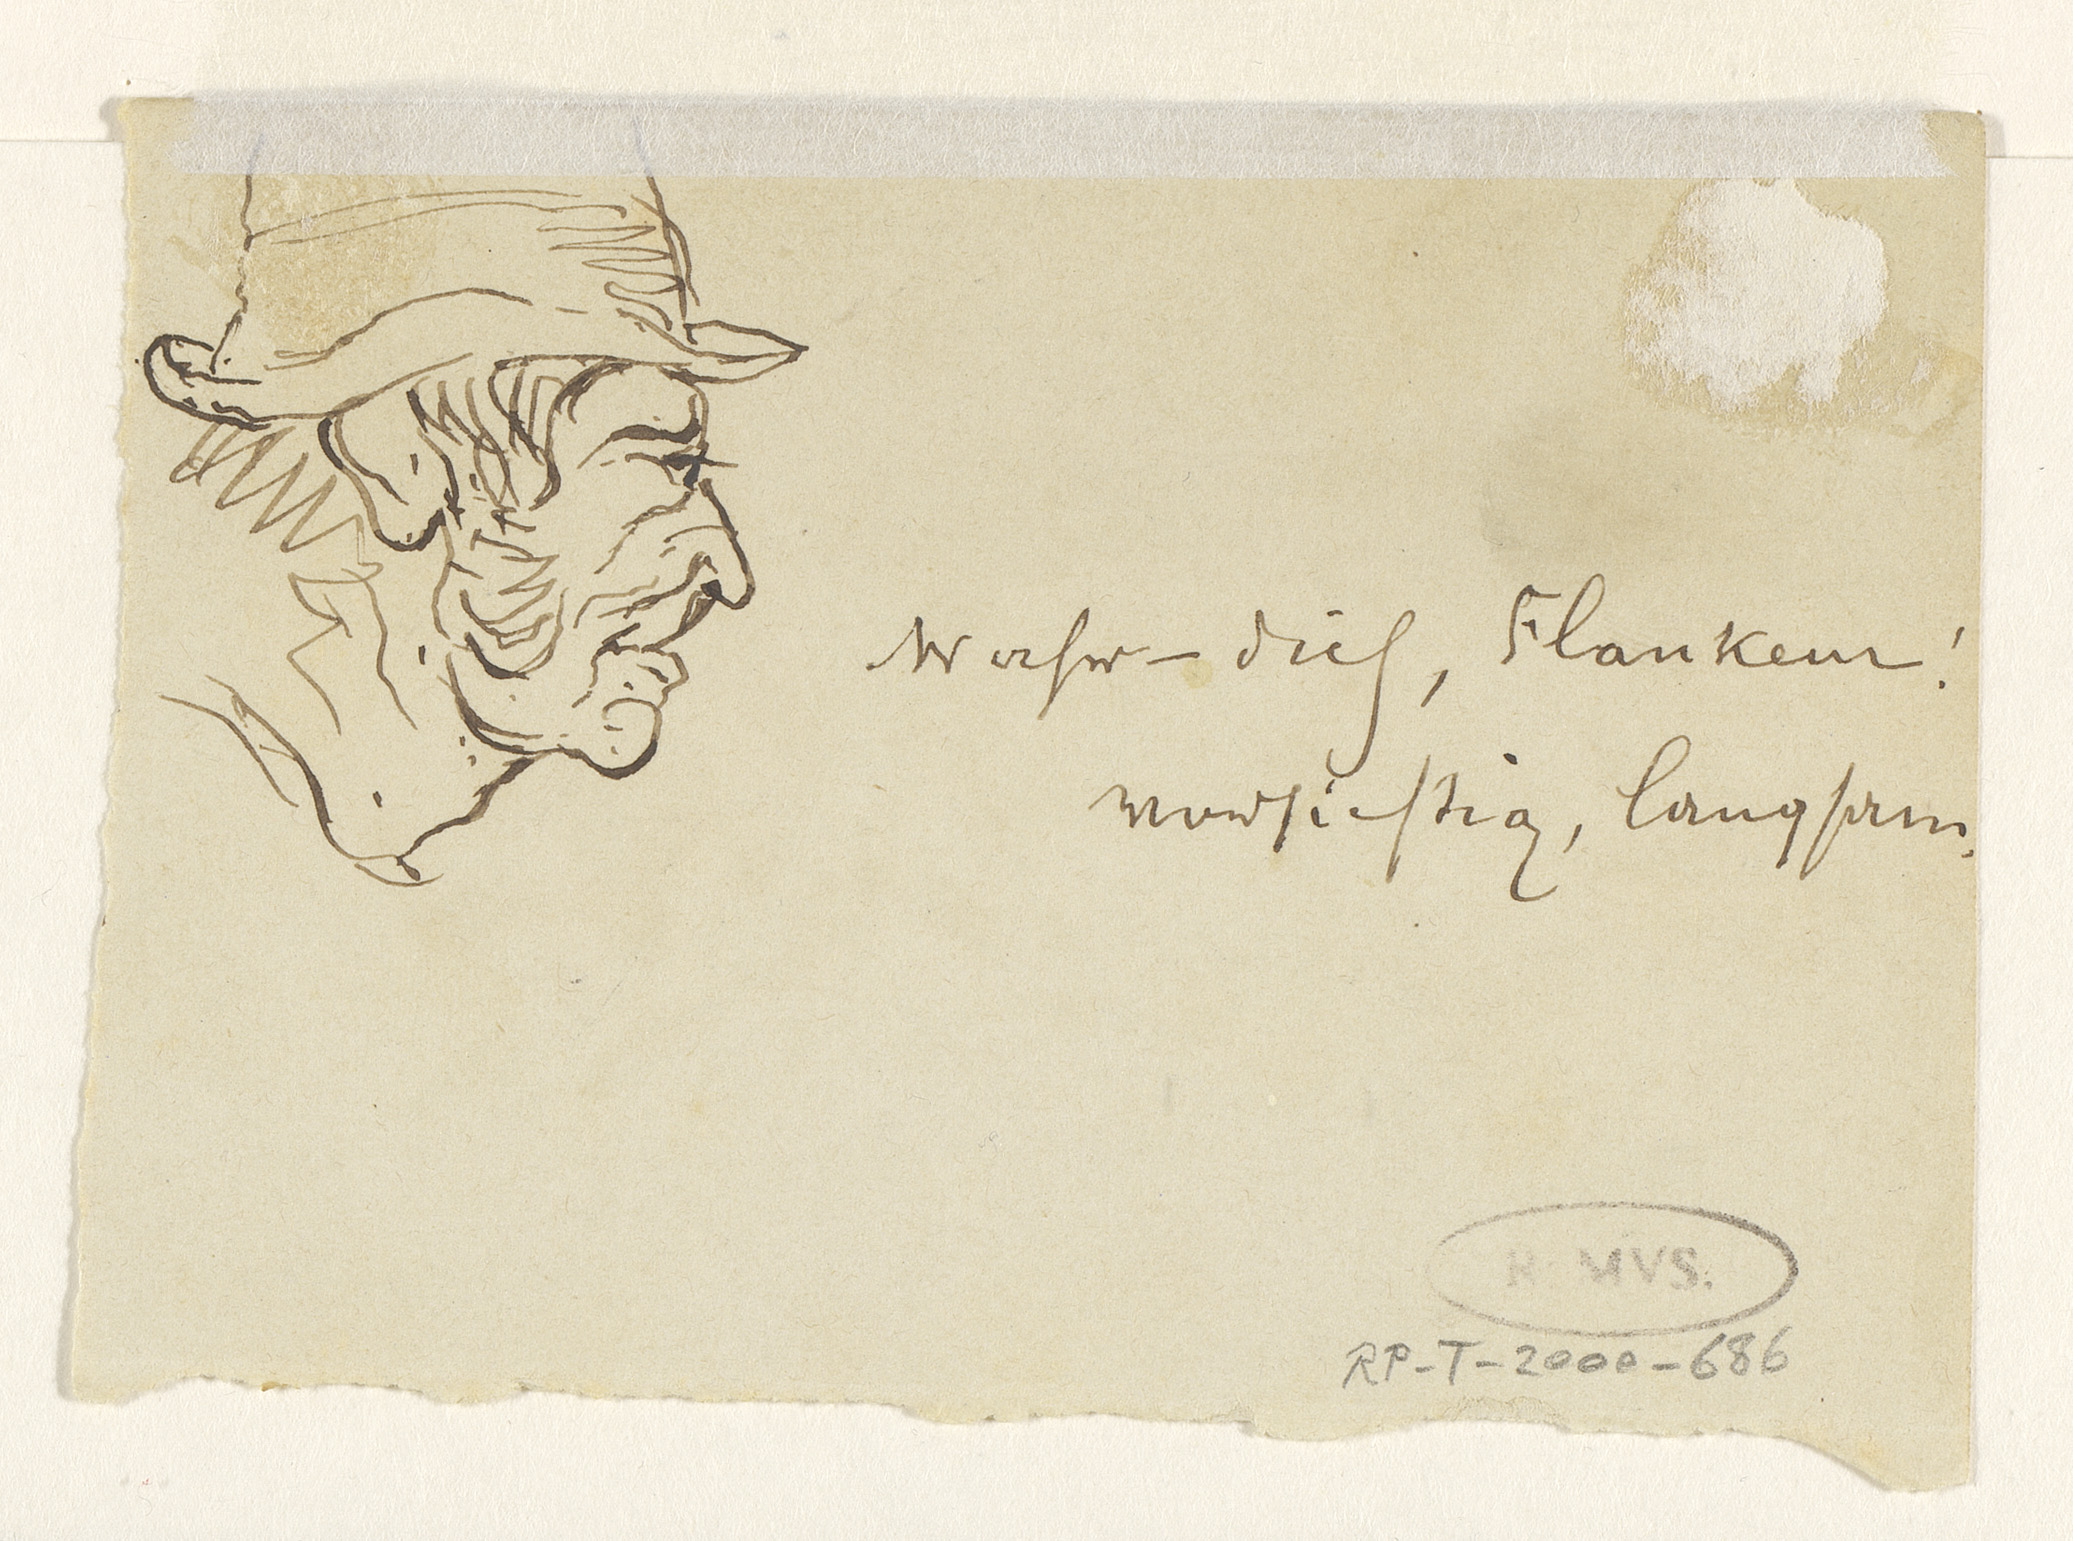 Wahr-dich, Flankeur!
vorsichtig, langsam.
R. MVS.
RP-T-2000-686